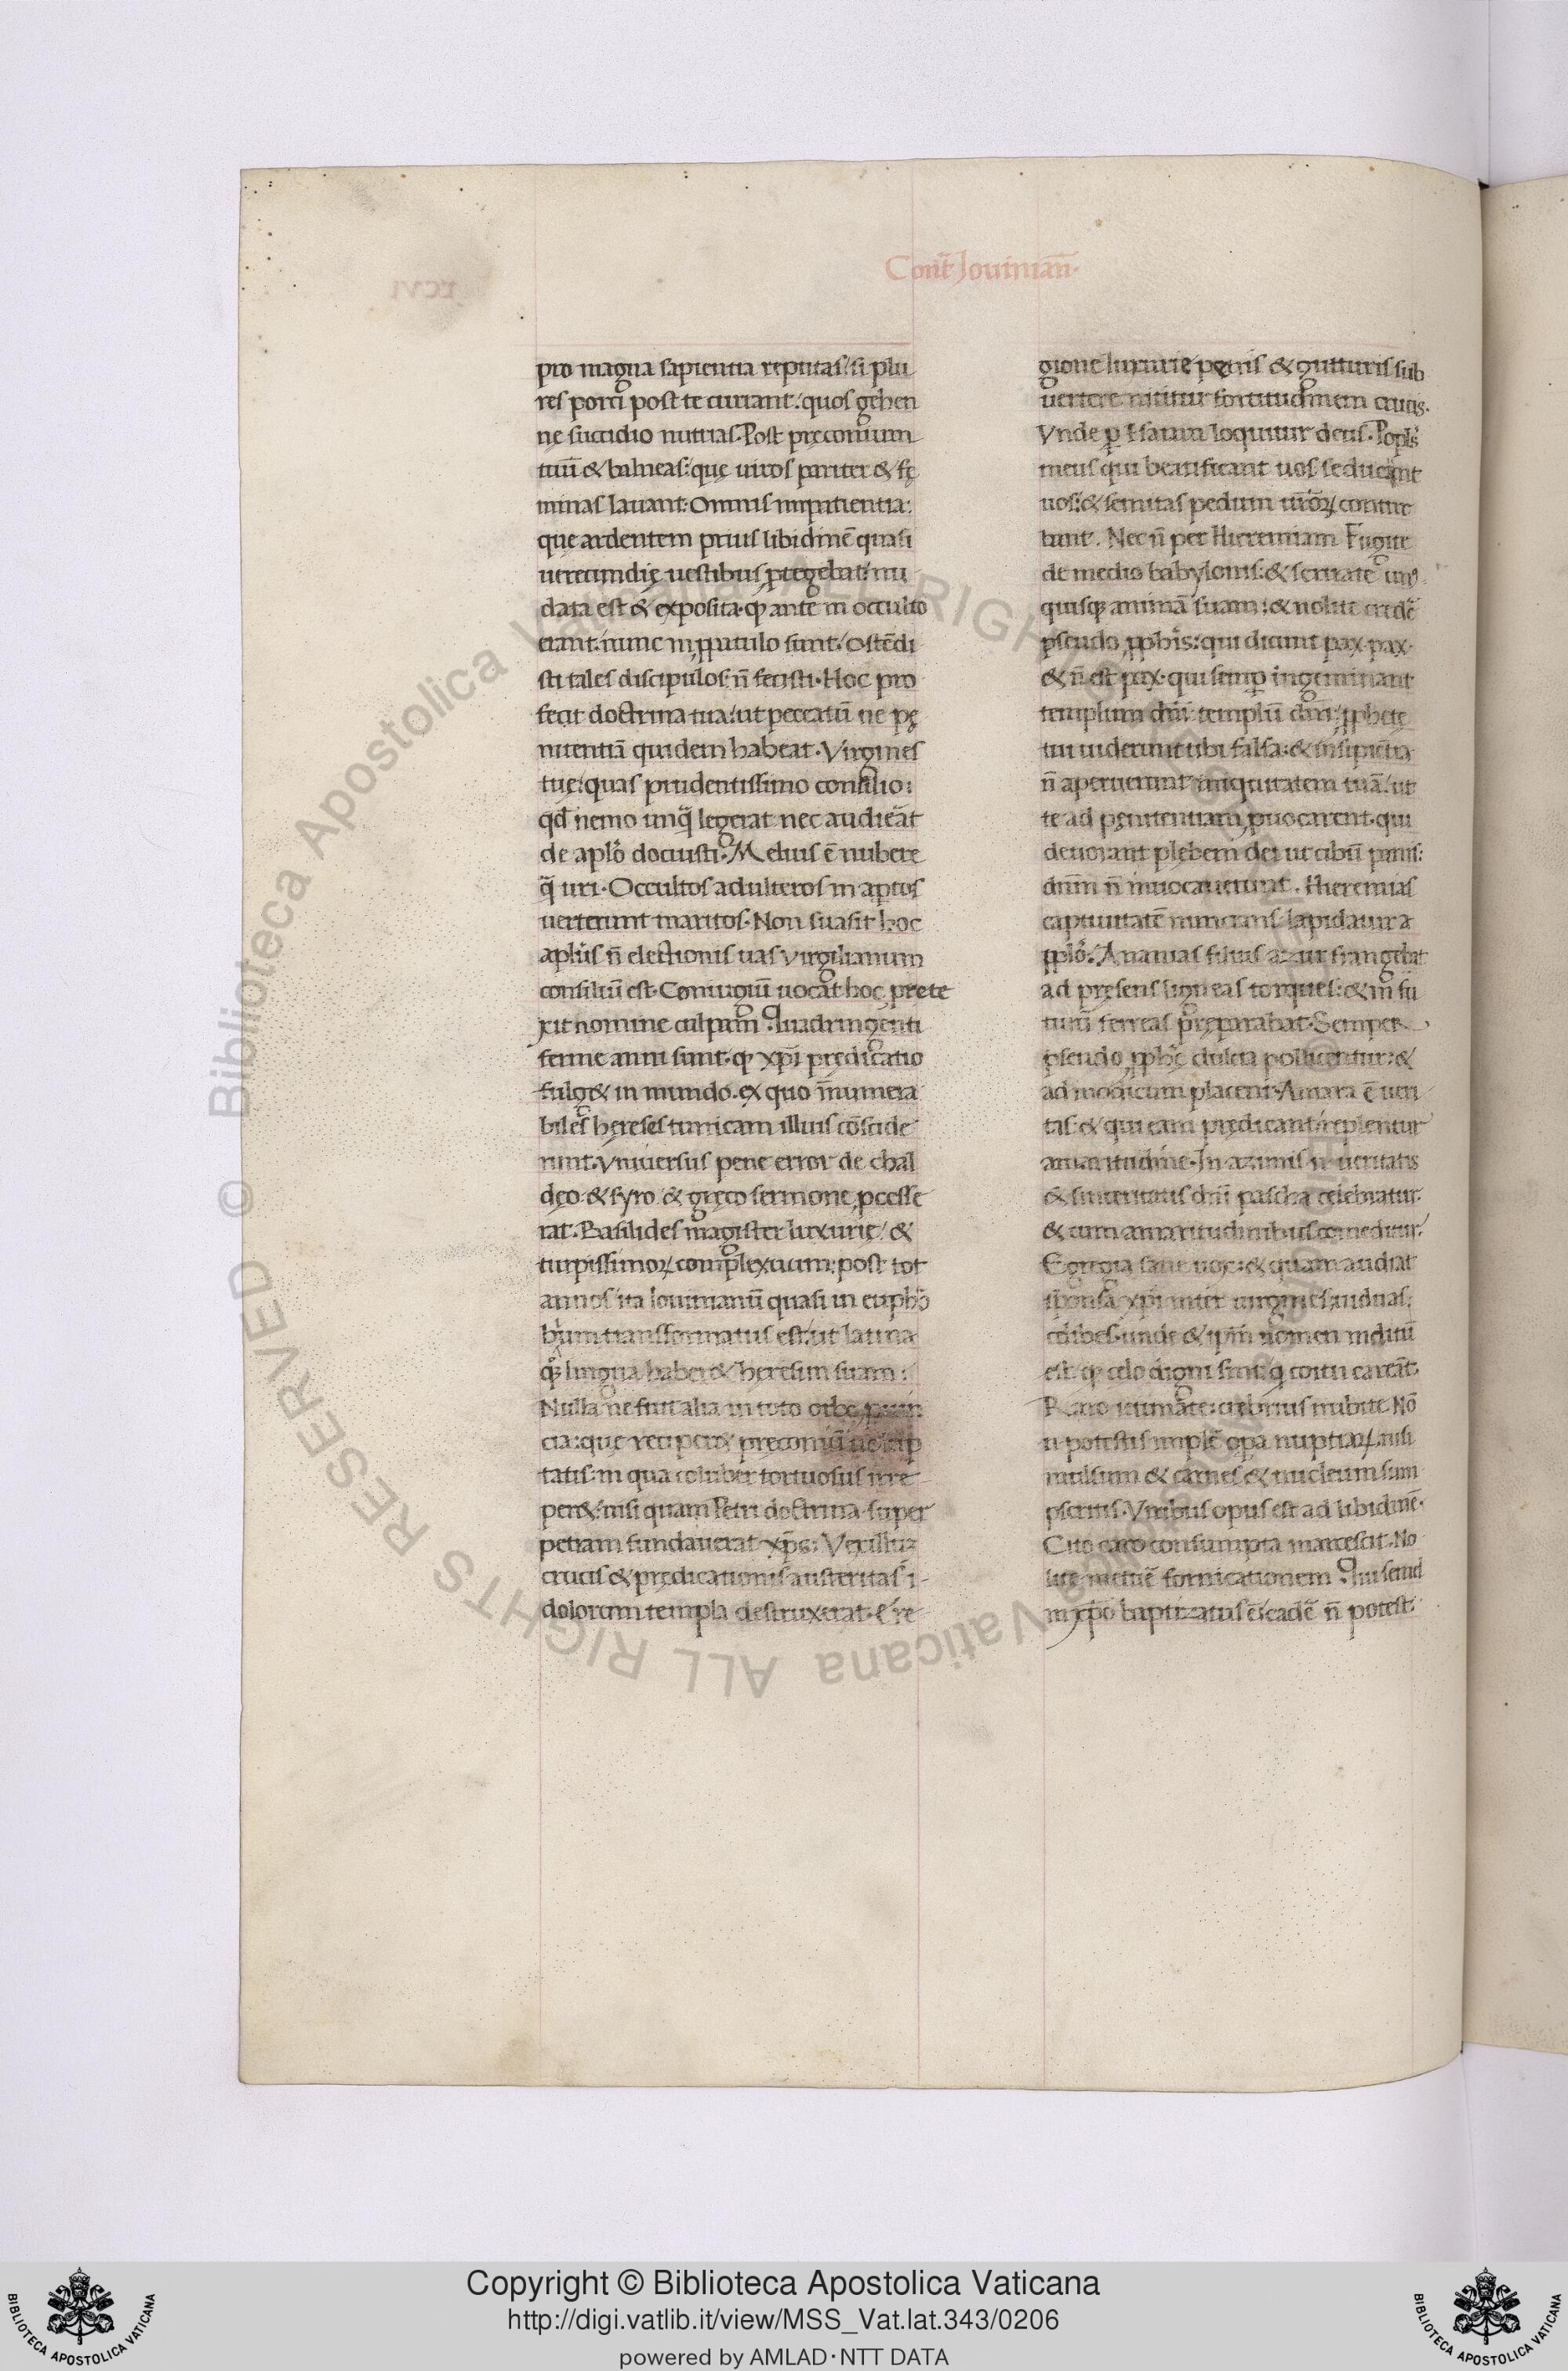 Cont̄ Iouinian̄·
pro magna sapientia reputas: si plu
res porci post te currant: quos gehen
ne succidio nutrias. Post pręconium
tuū & balneas: quę uiros pariter & fę
minas lauant: Omnis impatientia:
que ardentem prius libidinē quasi
uerecundię uestibus ꝓtegebat: nu
data est & exposita. qƺ ante in occulto
erant: nunc in ꝓpatulo sunt. Ostēdi
sti tales discipulos: n̄ fecisti. Hoc pro
fecit doctrina tua: ut peccatū ne pę
nitentiā quidem habeat. Virgines
tuę: quas prudentissimo consilio:
qđ nemo unq̄ legerat nec audierat
de aplo docuisti. Melius ē nubere
q̄ uri. Occultos adulteros in aptos
uerterunt maritos. Non suasit hoc
aplus n̄ electionis uas virgilianum
consiliū est. Coniugiū uocat hoc prete
xit nomine culpam. Quadringenti
ferme anni sunt. qƺ xp̄i prędicatio
fulg& in mundo. ex quo īnumera
biles hereses tunicam illius cōscide
runt. Vniuersus pene error de chal
dęo & syro & gręco sermone ꝓcesse
rat. Basilides magister luxurię: &
turpissimoꝝ complexuum: post tot
annos ita Iouinianū quasi in eupho
bum transformatus est: ut latina
qƺ lingua haber& heresim suam:
Nulla ne fuit alia in toto orbe ꝓuin
cia: quę reciper& pręconiū uolup
tatis: in qua coluber tortuosus irre
per&: nisi quam Petri doctrina super
petram fundauerat xp̄s: Vexillum
crucis & prędicationis austeritas i
dolorum templa destruxerat. E re
gione luxurię penis & gutturis sub
uertere nititur fortitudinem crucis.
Vnde ꝑ Esaiam loquitur deus. Popls
meus qui beatificant uos seducunt
uos: & semitas pedum uroꝝ contur
bant. Nec n̄ per Hieremiam Fugite
de medio babylonis: & seruate unꝰ
quisqƺ animā suam: & nolite credē
pseudo ꝓphis: qui dicunt pax pax
& n̄ est pax. qui semꝑ ingeminant
templum dn̄i templū dn̄i: ꝓphetę
tui uiderunt tibi falsa: & insipientia
n̄ aperuerunt iniquitatem tuā: ut
te ad pęnitentiam ꝓuocarent. qui
deuorant plebem dei ut cibū panis:
dn̄m n̄ inuocauerunt. Hieremias
captiuitatē nuncians lapidatur a
pplo. Ananias filius azur frangebat
ad pręsens ligneas torques: & in fu
turū ferreas pręparabat. Semper
pseudo ꝓphę dulcia pollicentur: &
ad modicum placent. Amara ē ueri
tas: & qui eam prędicant: replentur
amaritudine. In azimis n̄ ueritatis
& sinceritatis dn̄i pascha celebratur.
& cum amaritudinibus comeditur.
Egregia sane uox: & quam audiat
sponsa xp̄i inter uirgines: uiduas:
celibes. unde & ipm̄ nomen inditū
est. qƺ celo digni sint: q coitu careāt.
Raro ieiunate: crebrius nubite. Nō
n̄ potestis implē opa nuptiaꝝ. nisi
mulsum & carnes & nucleum sum
pseritis. Viribus opus est ad libidinē.
Cito caro consumpta marcescit. No
lite metuē fornicationem. Qui semel
in xp̄o baptizatus ē: cadē n̄ potest.
© Biblioteca Apostolica Vaticana ALL RIGHTS RESERVED
Copyright © Biblioteca Apostolica Vaticana
http://digi.vatlib.it/view/MSS_Vat.lat.343/0206
powered by AMLAD·NTT DATA
BIBLIOTECA APOSTOLICA VATICANA
BIBLIOTECA APOSTOLICA VATICANA